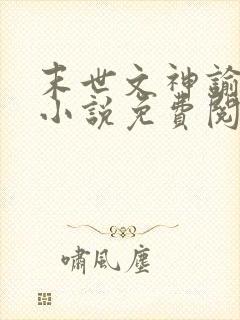 末世之神諭
小說免費閱
嘯風塵